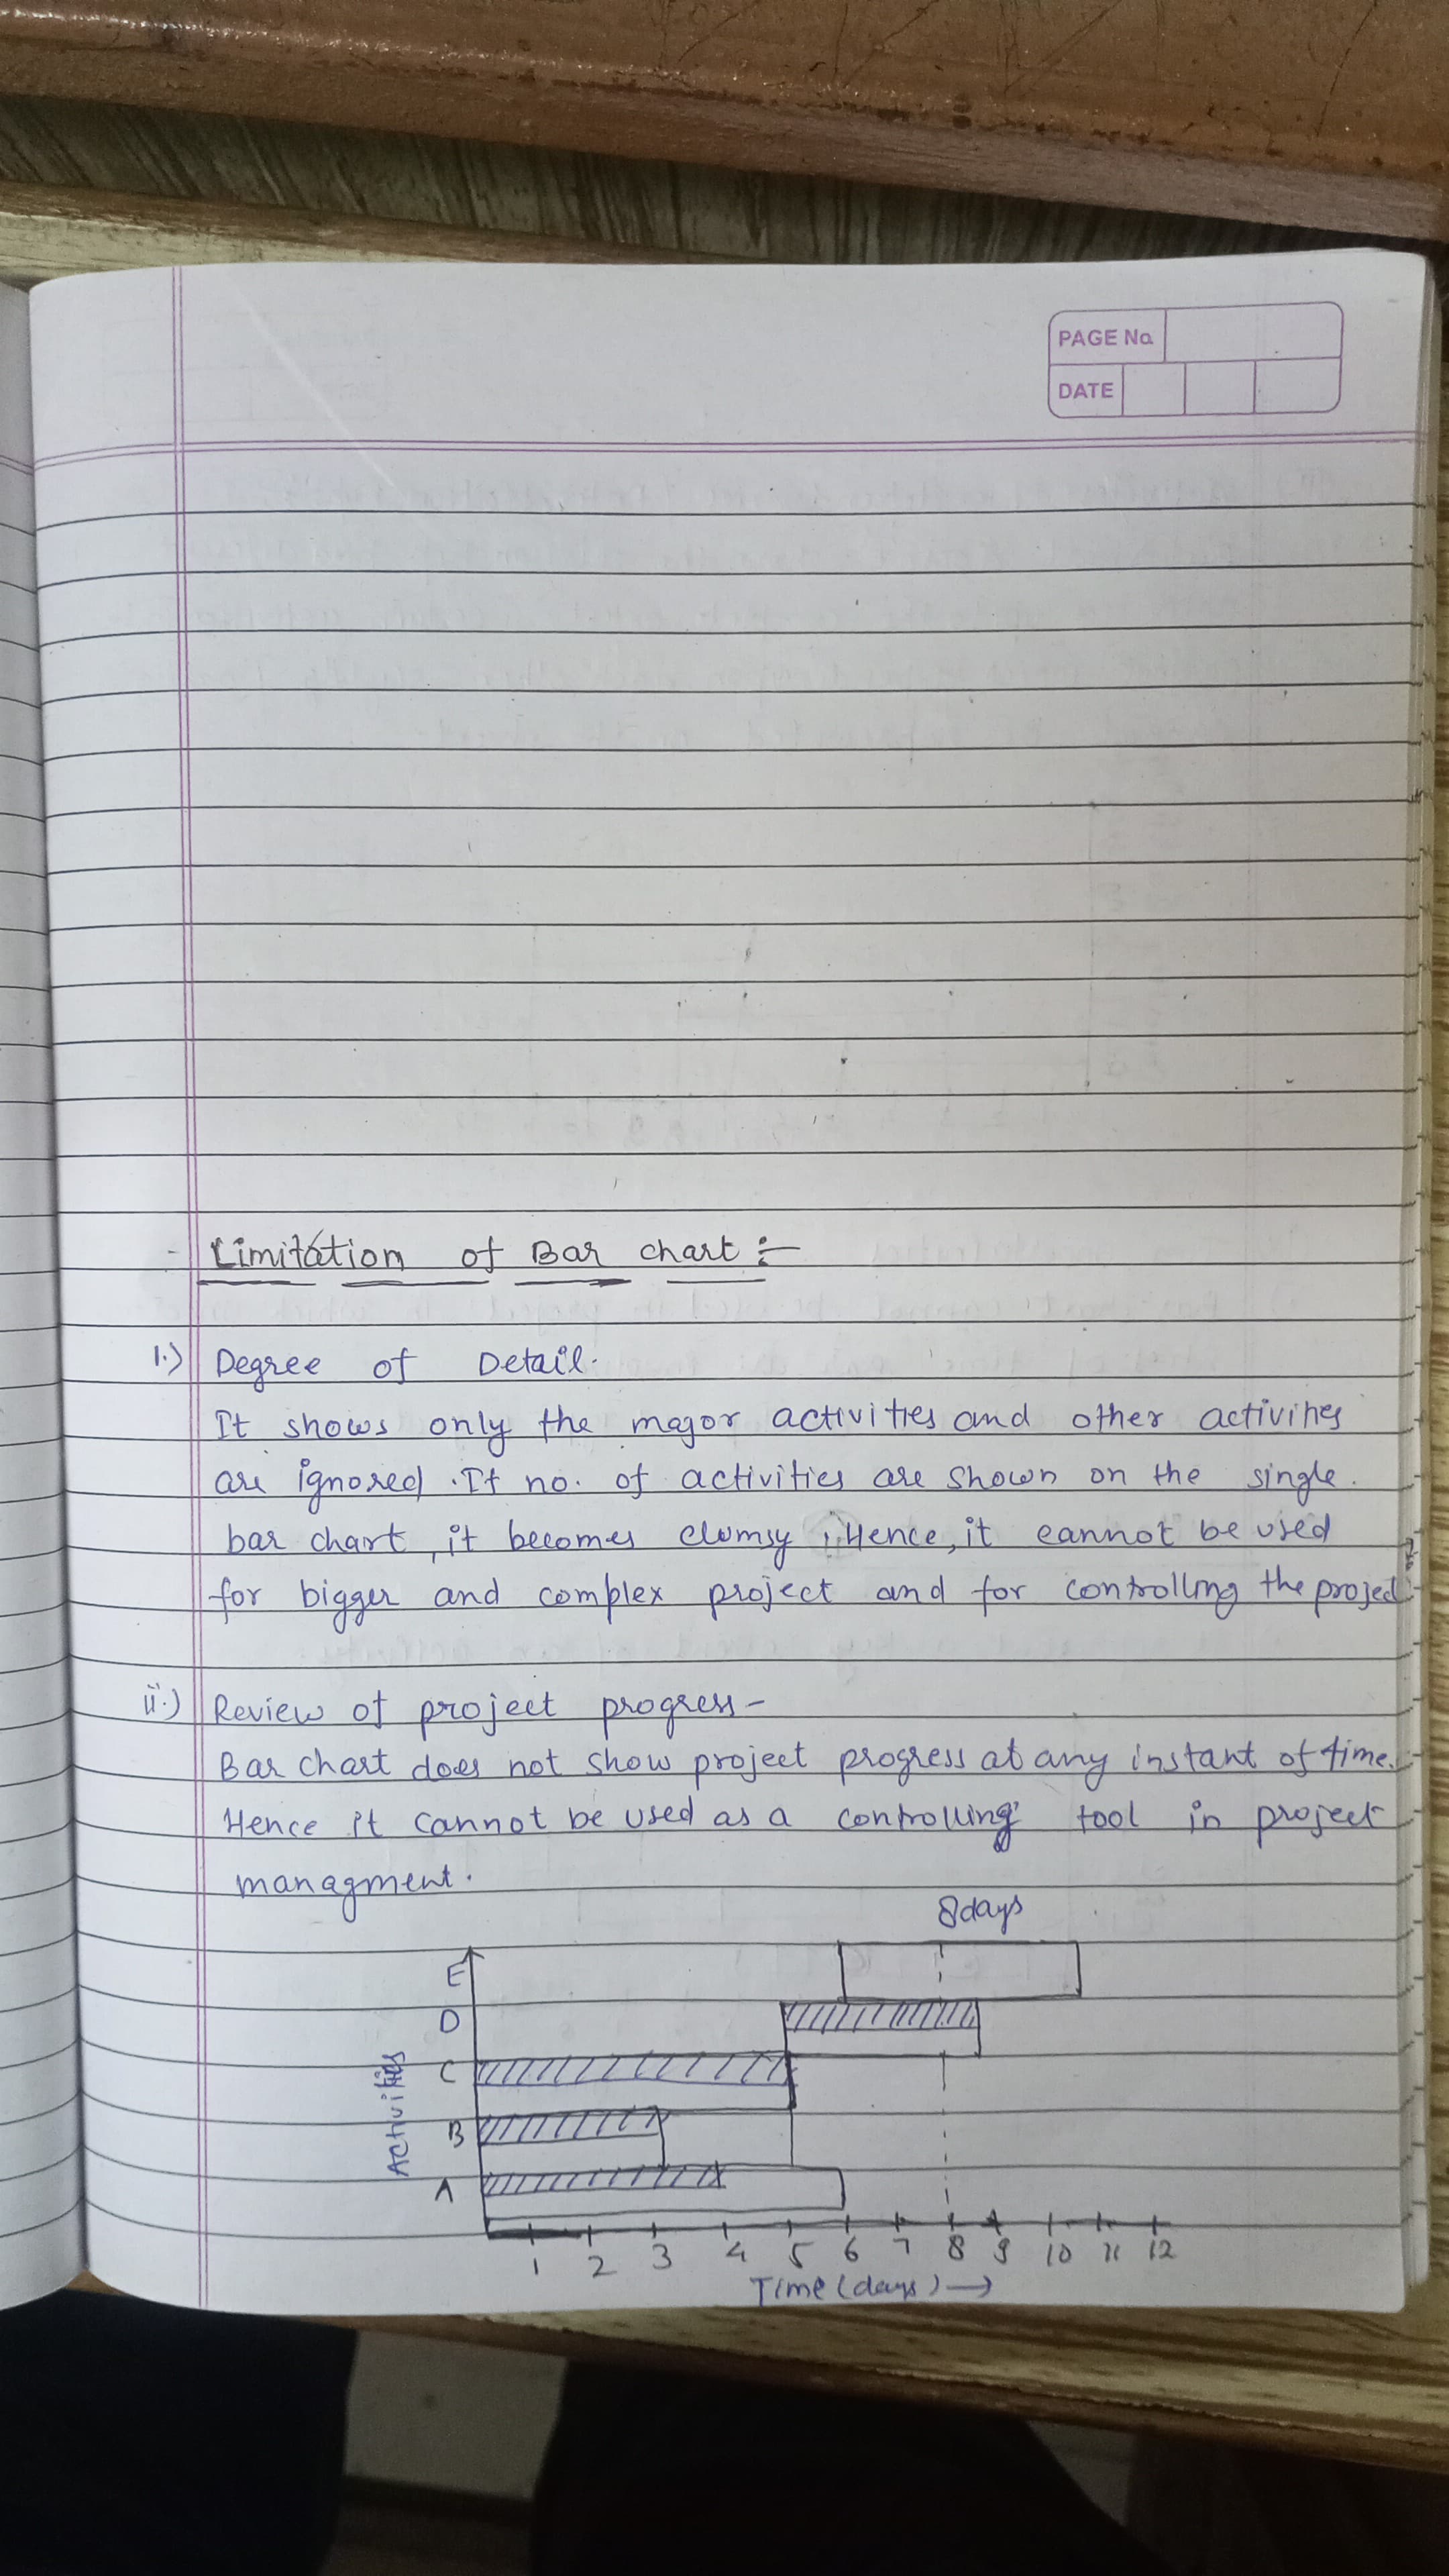 PAGE No.
DATE
Limitation of Bar chart :-
1.) Degree of Detail.
It shows only the major activities and other activities
are ignored. If no. of activities are shown on the single.
bar chart, it becomes clumsy. Hence, it cannot be used
for bigger and complex project and for controlling the project
ii.) Review of project progress -
Bar chart does not show project progress at any instant of time.
Hence it cannot be used as a controlling tool in project
managment.
8days
E
D
C
B
A
Activities
1 2 3 4 5 6 7 8 9 10 11 12
Time (days) →